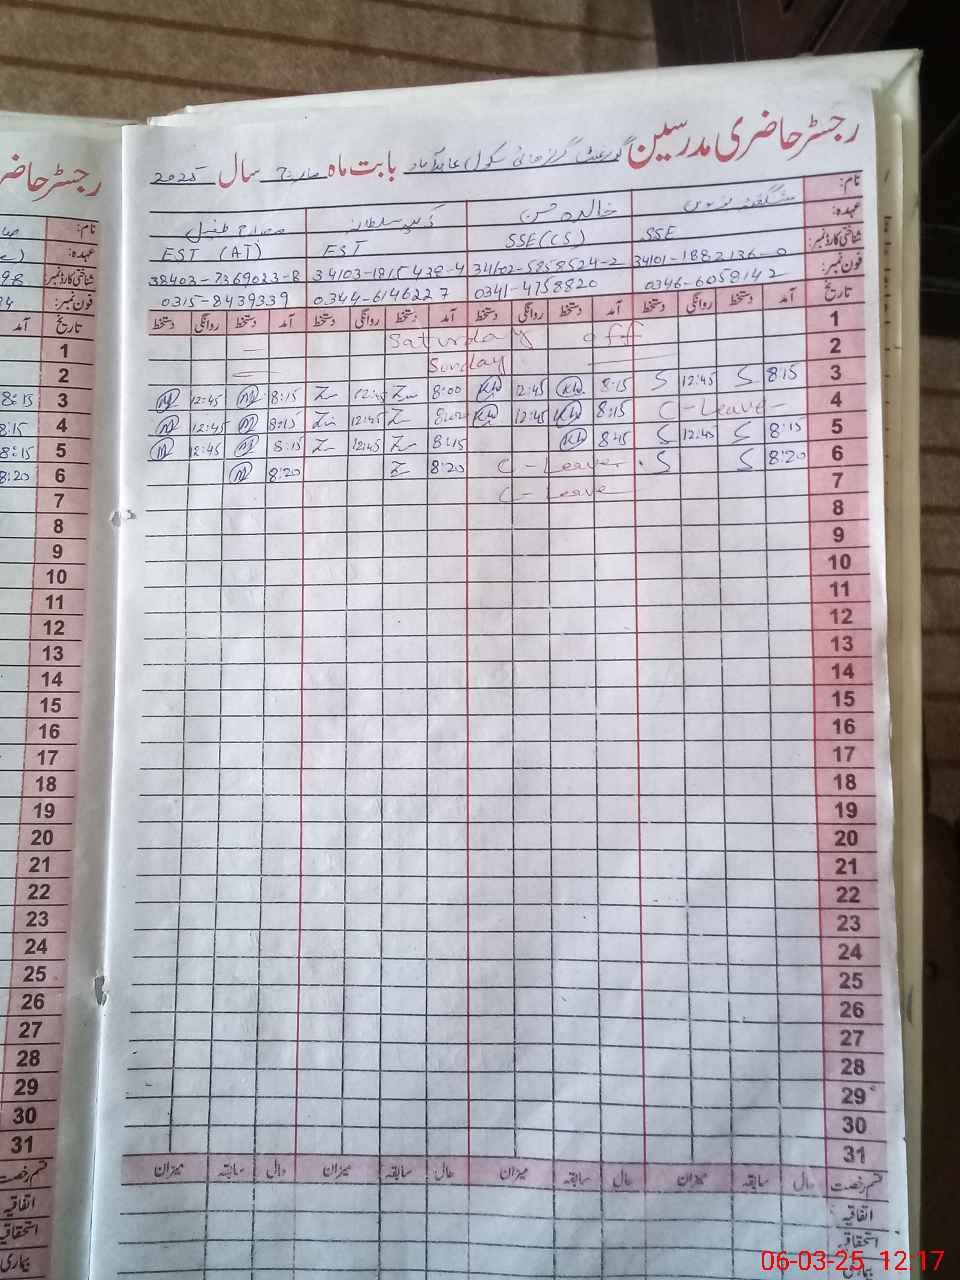 رجسٹر حاضری مدرسین گورنمنٹ گرلز ہائی سکول عابد آباد بابت ماہ مارچ سال 2025
نام: شگفتہ خالدہ حسن سلطانہ طفیل
عہدہ: SSE SSE(CS) EST EST (AT)
شناختی کارڈ نمبر: 34101-1882136-0 34102-5858524-2 34103-1815438-4 38403-7369023-8
فون نمبر: 0346-6059142 0341-4758820 0344-6146227 0315-8439339
تاریخ آمد دستخط روانگی دستخط آمد دستخط روانگی دستخط آمد دستخط روانگی دستخط آمد دستخط روانگی دستخط
1 Saturday off
2 Sunday
3 8:15 12:45 8:15 Kh 12:45 Kh 8:00 12:45 8:15 12:45
4 C-Leave 8:15 Kh 12:45 Kh 12:45 8:15 12:45
5 8:15 12:45 8:45 Kh 8:15 12:45 8:15 12:45
6 8:20 C-Leave 8:20 8:20
7 C-Leave
8
9
10
11
12
13
14
15
16
17
18
19
20
21
22
23
24
25
26
27
28
29
30
31
قسم رخصت حال سابقہ میزان حال سابقہ میزان حال سابقہ میزان حال سابقہ میزان
اتفاقیہ
استحقاقیہ
رجسٹر حاضری
نام:
عہدہ:
شناختی کارڈ نمبر:
فون نمبر:
تاریخ آمد
1
2
3 8:15
4 8:15
5 8:15
6 8:20
7
8
9
10
11
12
13
14
15
16
17
18
19
20
21
22
23
24
25
26
27
28
29
30
31
قسم رخصت
اتفاقیہ
استحقاقیہ
بیماری
06-03-25 12:17